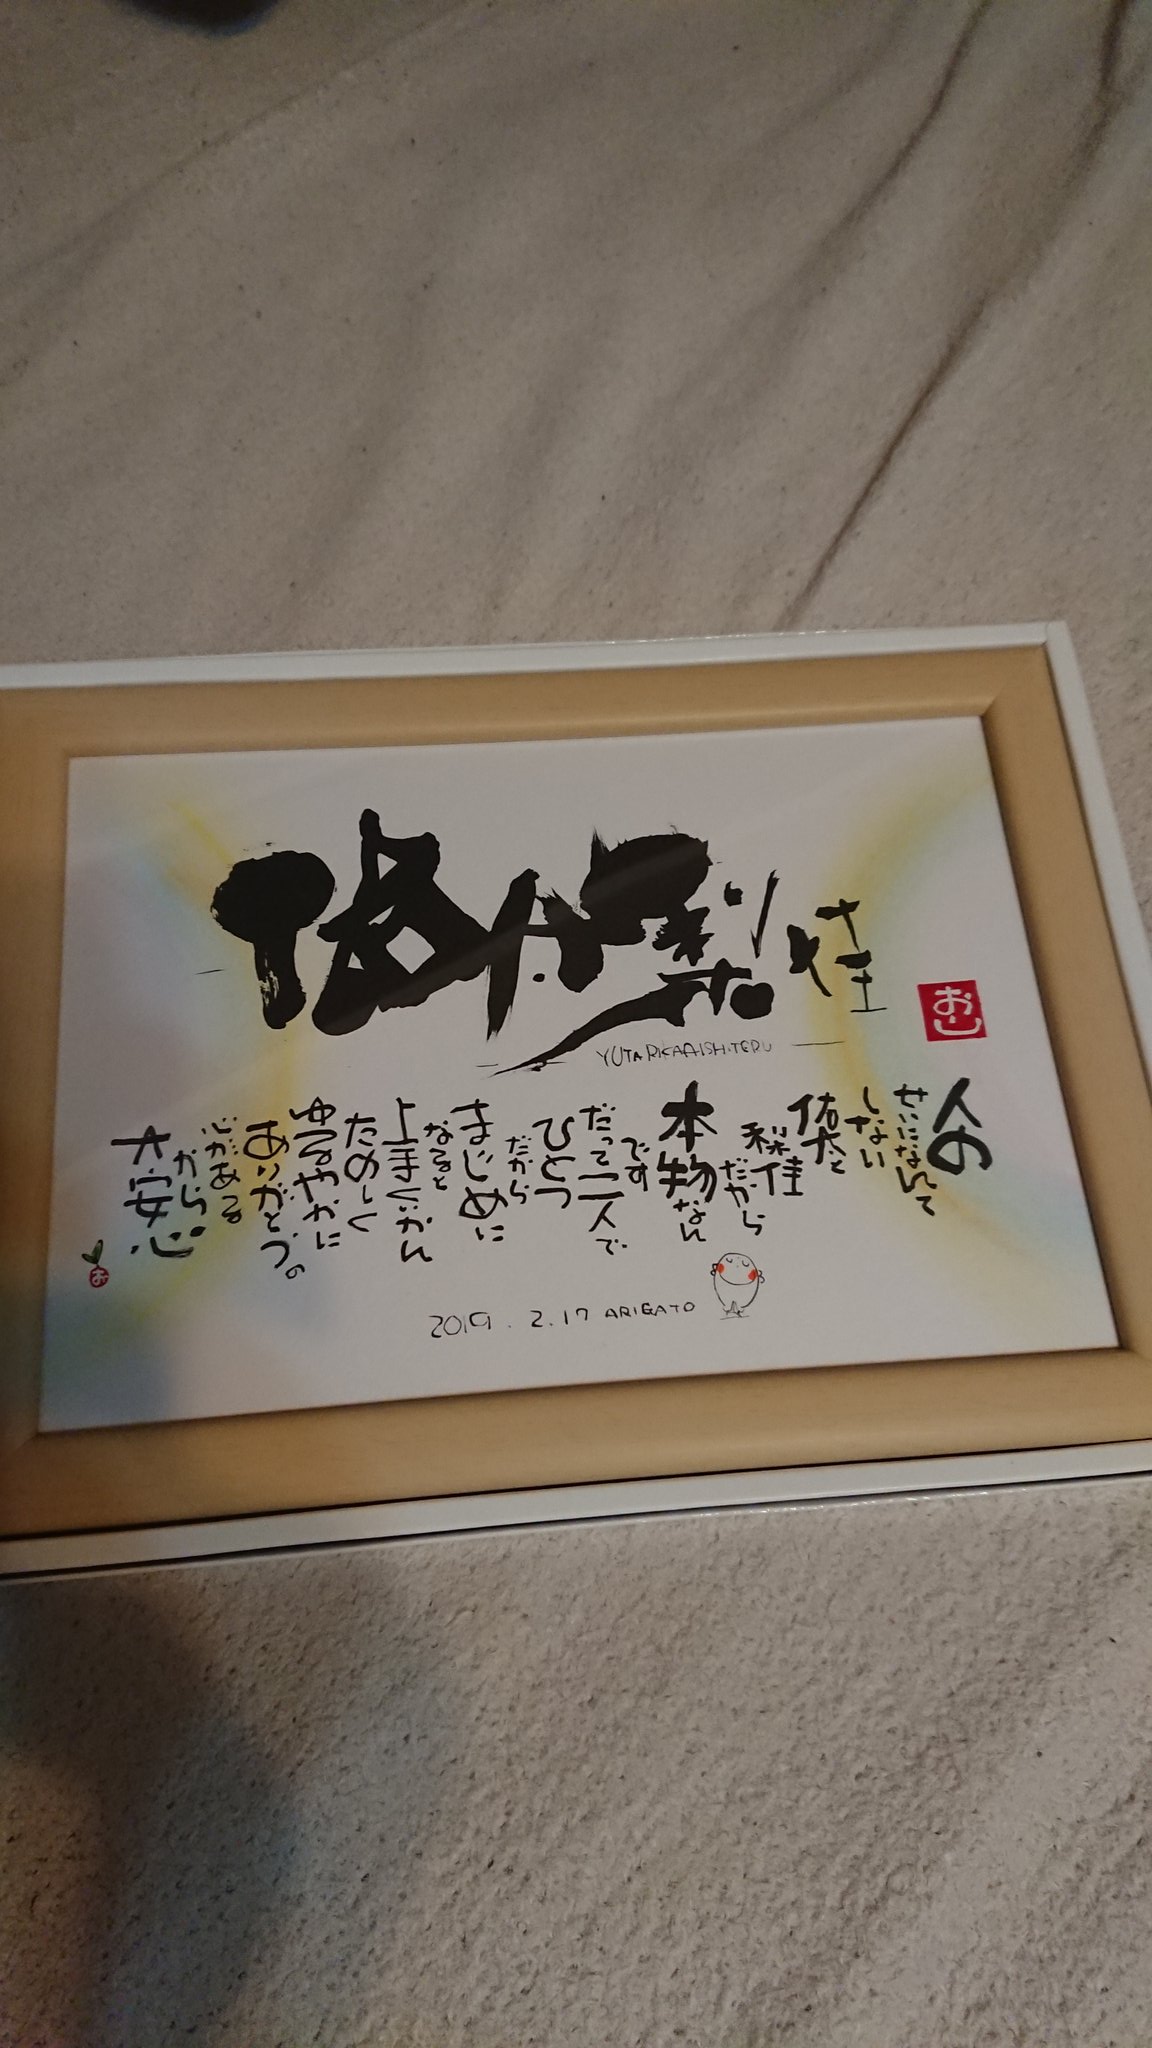 佑太梨佳
おし
YUTA RIKA AISHITERU
人の
せいになんて
しない
佑太と
梨佳
だから
本物なん
です
だって二人で
ひとつ
だから
まじめに
なると
上手くいかん
たのしく
ゆるやかに
ありがとう。
心がある
から
大安心
お
2019.2.17 ARIGATO